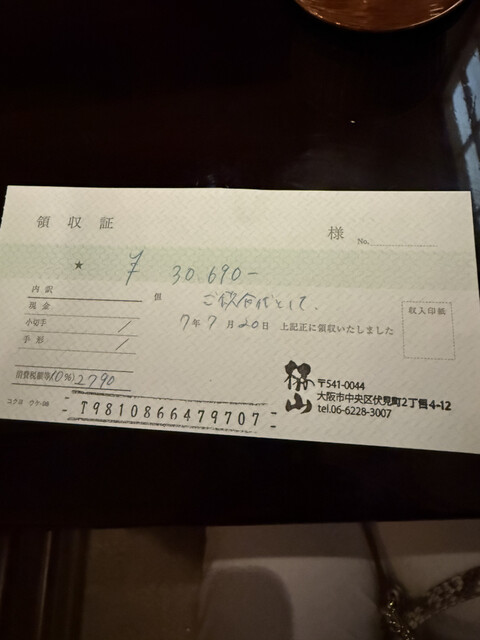 領収証
様
No.
★ ¥ 30,690-
但 ご飲食代として、
7年7月20日 上記正に領収いたしました
内訳
現金
小切手 /
手形 /
消費税額等(10%) 2790
収入印紙
コクヨ ウケ-98
T9810866479707
〒541-0044
大阪市中央区伏見町2丁目4-12
tel.06-6228-3007